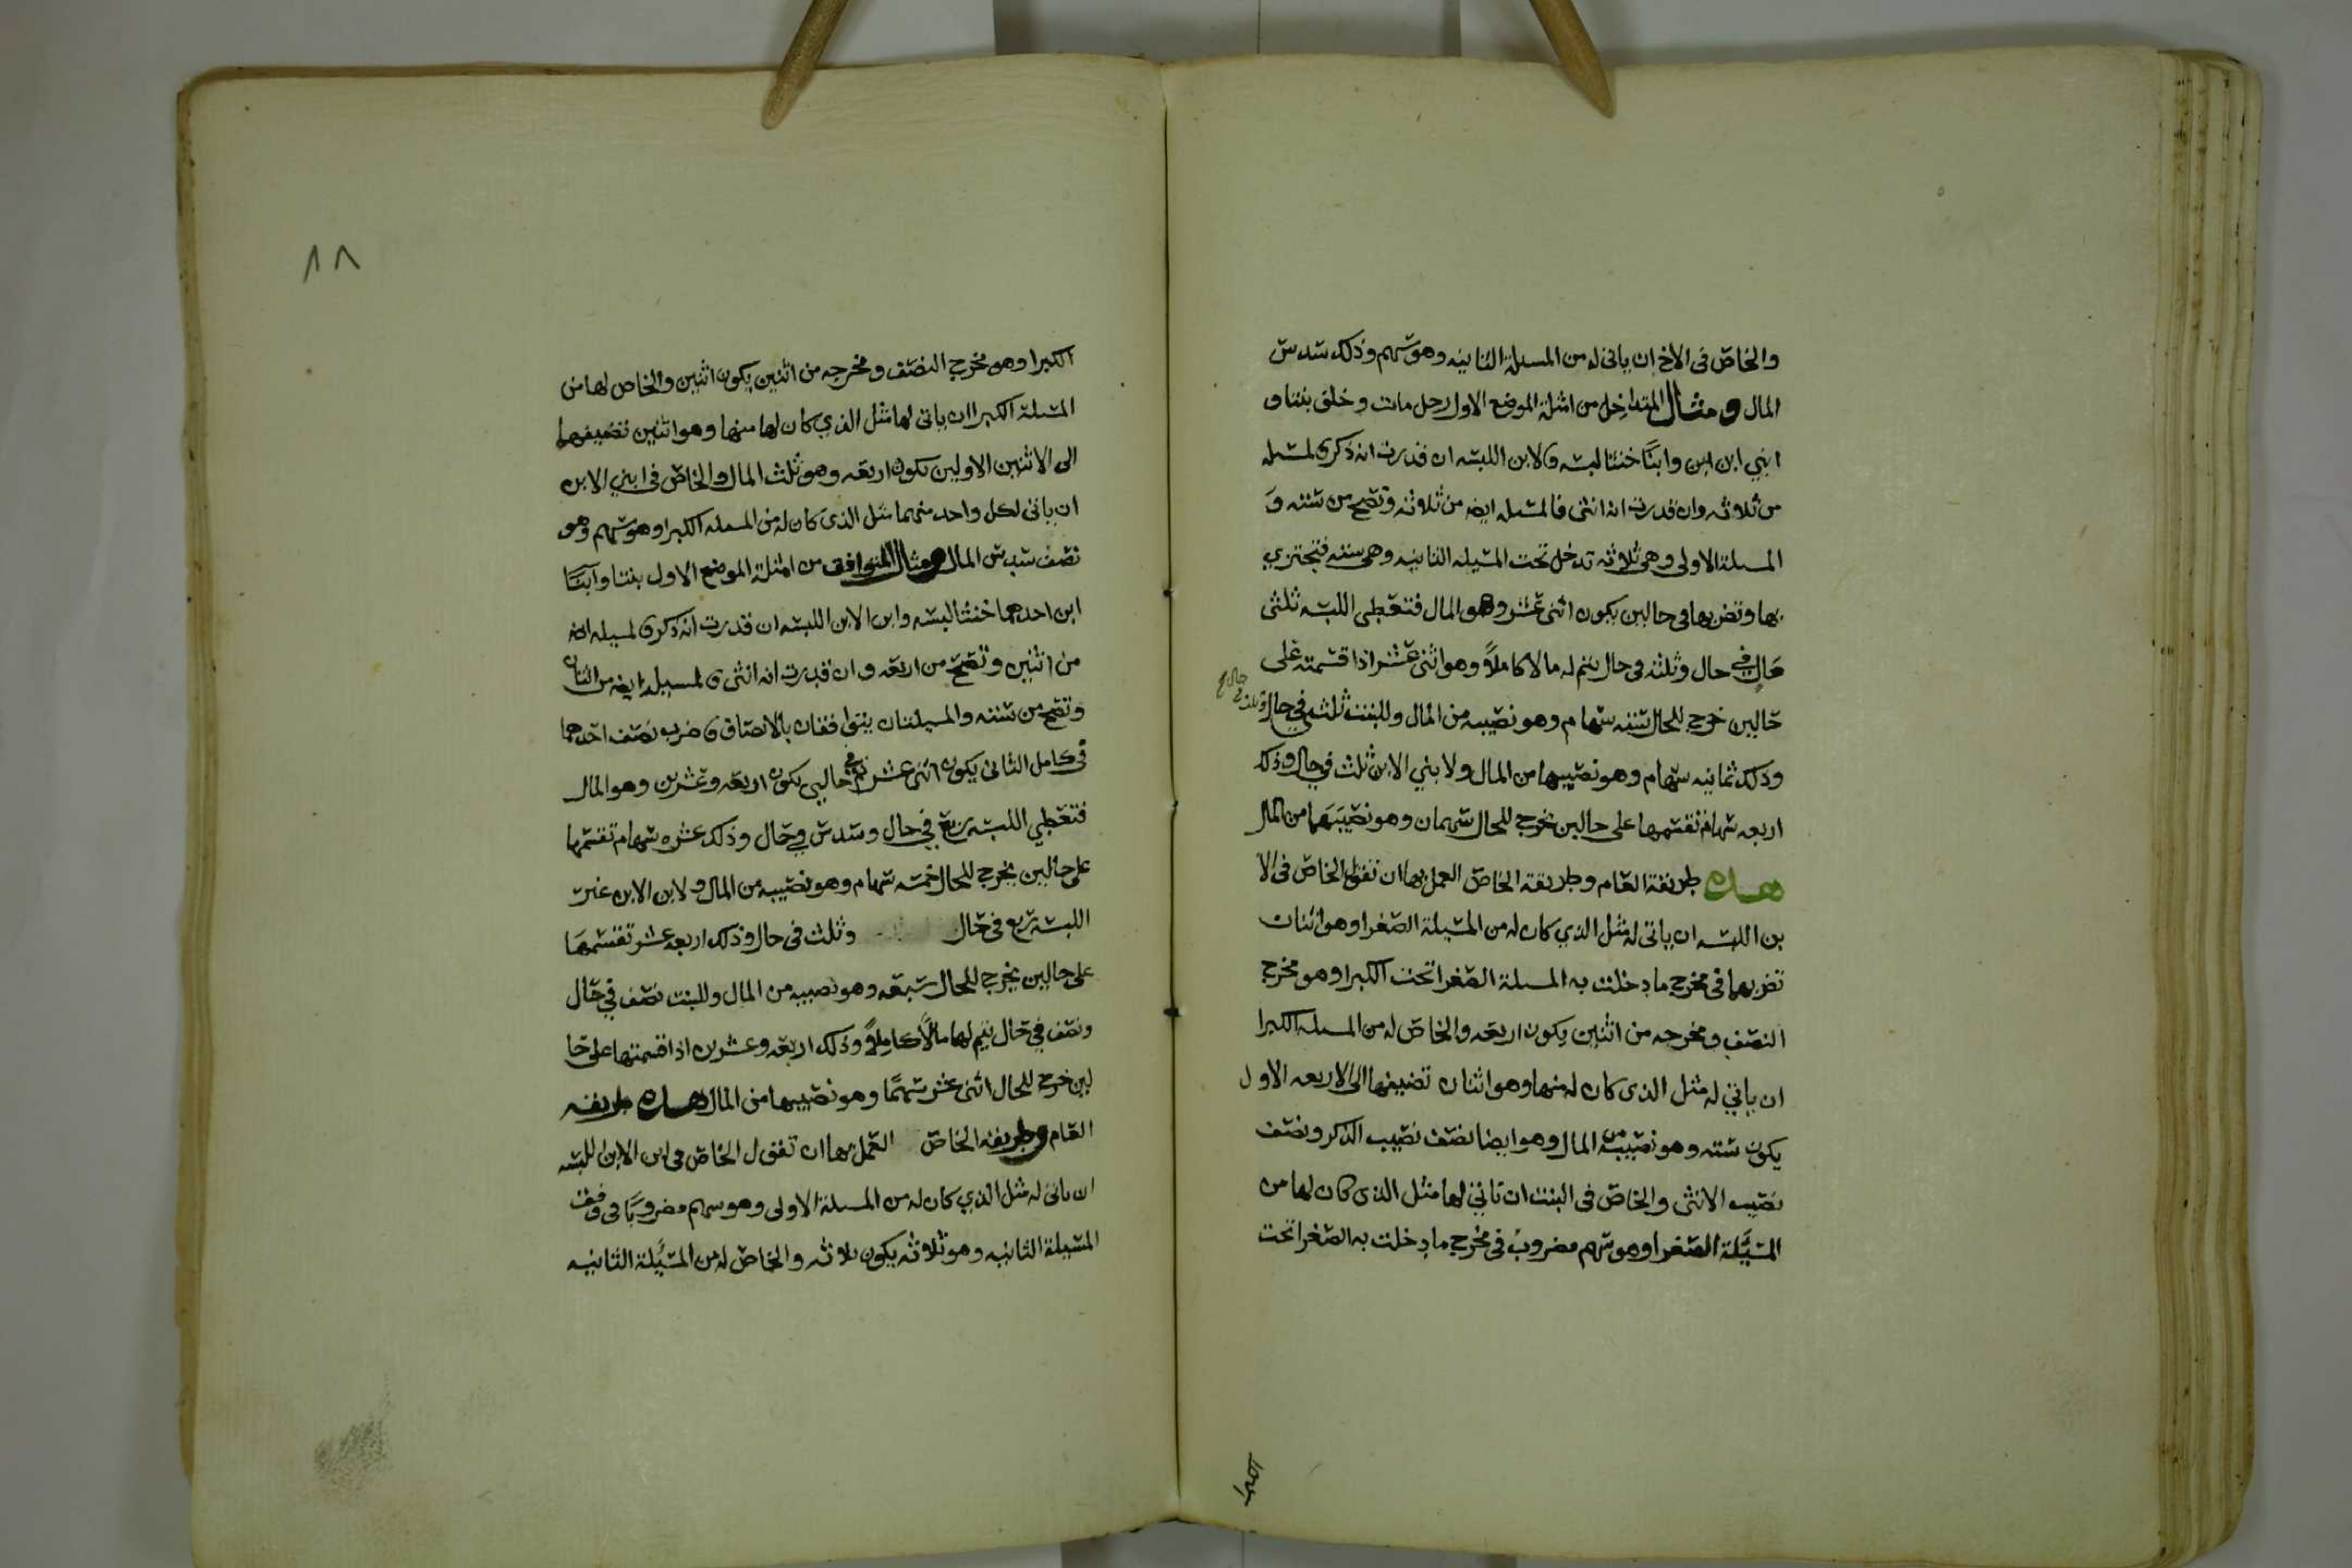 والخاص في الاخ ان ياتي له من المسىلة الثانيه وهو سهم وذلك سدس
المال ومثال المتداخل من امثلة الموضع الاول رجل مات وخلف بنتا و
ابني ابن ابن وابنًا خنثا لبسه ولابن اللبسه ان قدرت انه ذكر فالمسىله
من ثلاثه وان قدرت انه انثى فالمسىله ايضه من ثلاثه وتصح من سته و
المسىلة الاولى وهي ثلاثه تدخل تحت المسيله الثانيه وهي سته فتجتزي
بها وتضربها في حالين يكون اثنى عشر وهو المال فتعطي اللبسه ثلثي
مال في حال وثلثه في حال يتم له مالا كاملاً وهو اثنى عشر اذا قسمته على
حالين خرج للحال سته سهام وهو نصيبه من المال وللبنت ثلث في حال وثلث في حال
وذلك ثمانيه سهام وهو نصيبها من المال ولابني الابن ثلث في حال وذلك
اربعه سهام تقسمها على حالين يخرج للحال سهمان وهو نصيبهما من المال
هذه طريقة العام وطريقة الخاص العمل بها ان تقول الخاص في الا
بن اللبسه ان ياتي له مثل الذي كان له من المسيلة الصغرا وهو اثنان
تضربهما في مخرج ما دخلت به المسىلة الصغرا تحت الكبرا وهو مخرج
النصف ومخرجه من اثنين يكون اربعه والخاص له من المسىله الكبرا
ان ياتي له مثل الذي كان له منها وهو اثنان تضيفها الى الاربعه الاول
يكون سته وهو نصيبه من المال وهو ايضا نصف نصيب الذكر ونصف
نصيب الانثى والخاص في البنت ان تاتي لها مثل الذي كان لها من
المسيلة الصغرا وهو سهم مضروب في مخرج ما دخلت به الصغرا تحت
الكبرا
٨٨
الكبرا وهو مخرج النصف ومخرجه من اثنين يكون اثنين والخاص لها من
المسىلة الكبرا ان ياتي لها مثل الذي كان لها منها وهو اثنين تضيفهما
الى الاثنين الاولين يكون اربعه وهو ثلث المال والخاص في ابني الابن
ان ياتي لكل واحد منهما مثل الذي كان له من المسىله الكبرا وهو سهم وهو
نصف سدس المال ومثال المتوافق من امثلة الموضع الاول بنتا وابنًا
ابن احدهما خنثا لبسه وابن الابن اللبسه ان قدرت انه ذكر فالمسيله ايضه
من اثنين وتصح من اربعه وان قدرت انه انثى فالمسيله ايضه من اثنان
وتصح من سته والمسيلتان يتوافقان بالانصاف فاضرب نصف احدهما
في كامل الثاني يكون اثنى عشر ثم في حالين يكون اربعه وعشرين وهو المال
فتعطي اللبسه ربع في حال وسدس في حال وذلك عشره سهام تقسمها
على حالين يخرج للحال خمسه سهام وهو نصيبه من المال ولابن الابن غير
اللبسه ربع في حال وثلث في حال وذلك اربعه عشر تقسمها
على حالين يخرج للحال سبعه وهو نصيبه من المال وللبنت نصف في حال
ونصف في حال يتم لها مالًا كاملاً وذلك اربعه وعشرين اذا قسمتها على حا
لين خرج للحال اثنى عشر سهمًا وهو نصيبها من المال هذه طريقه
العام وطريقه الخاص العمل بها ان تقول الخاص في ابن الابن اللبسه
ان ياتي له مثل الذي كان له من المسىلة الاولى وهو سهم مضروبًا في وفق
المسيلة الثانيه وهو ثلاثه يكون ثلاثه والخاص له من المسيلة الثانيه